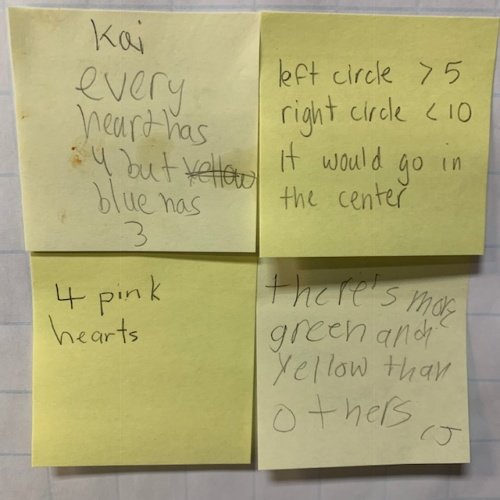 Kai
every
heart has
4 but yellow
blue has
3
left circle > 5
right circle < 10
It would go in
the center
4 pink
hearts
there's more
green and
Yellow than
others
CJ